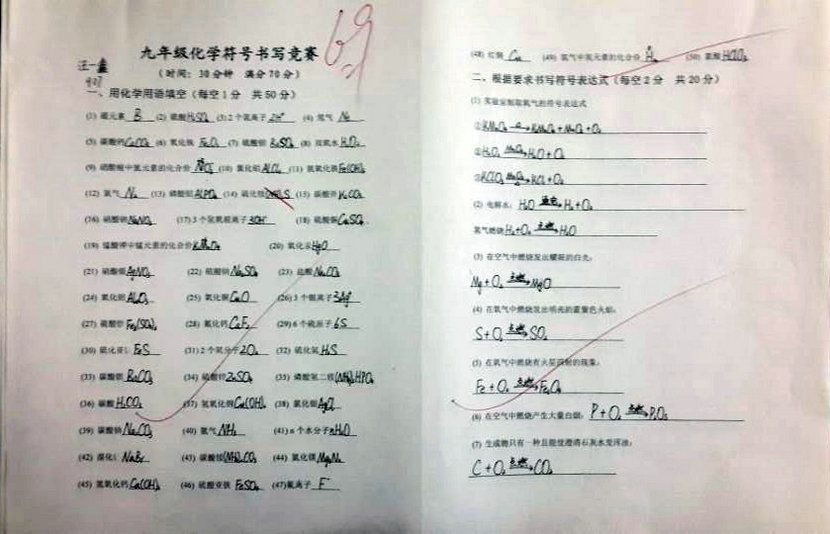 九年级化学符号书写竞赛
69
(时间: 30分钟 满分70分)
一、用化学用语填空 (每空1分 共50分)
(1) 硫元素 (2) 硫酸 H₂SO₄ (3) 2个氢离子 2H⁺ (4) 氮气 N₂
(5) 碳酸钙 CaCO₃ (6) 氧化铁 Fe₂O₃ (7) 硫酸钡 BaSO₄ (8) 双氧水 H₂O₂
(9) 硝酸根中氮元素的化合价 (10) 氯化铝 AlCl₃ (11) 氢氧化铁 Fe(OH)₃
(12) 氮气 N₂ (13) 磷酸铝 AlPO₄ (14) (15) 碳酸钾 K₂CO₃
(16) 硝酸钠 NaNO₃ (17) 3个氢氧根离子 3OH⁻ (18) 硫酸铜 CuSO₄
(19) 锰酸钾中锰元素的化合价 (20) 氧化汞 HgO
(21) 硝酸银 AgNO₃ (22) 硫酸钠 Na₂SO₄ (23) Na₂CO₃
(24) 氧化铝 Al₂O₃ (25) 氧化铜 CuO (26) 3个银离子 3Ag⁺
(27) 硫酸铁 Fe₂(SO₄)₃ (28) 氟化钙 CaF₂ (29) 6个硫原子 6S
(30) 硫化亚铁 FeS (31) 2个氧分子 2O₂ (32) 硫化氢 H₂S
(33) 碳酸钡 BaCO₃ (34) 硫酸锌 ZnSO₄ (35) 磷酸氢二铵 (NH₄)₂HPO₄
(36) 碳酸 H₂CO₃ (37) 氢氧化铜 Cu(OH)₂ (38) 氯化银 AgCl
(39) 碳酸钠 Na₂CO₃ (40) 氨气 NH₃ (41) n个水分子 nH₂O
(42) 溴化钠 NaBr (43) 碳酸铵 (NH₄)₂CO₃ (44) 氮化镁 Mg₃N₂
(45) 氢氧化钙 Ca(OH)₂ (46) 硫酸亚铁 FeSO₄ (47) 氟离子 F⁻
(48) 红铜 Cu (49) 氢气中氢元素的化合价 (50) 氯酸 HClO₃
二、根据要求书写符号表达式 (每空2分 共20分)
(1) 实验室制取氧气的符号表达式
① KMnO₄ → K₂MnO₄ + MnO₂ + O₂
② H₂O₂ MnO₂→ H₂O + O₂
③ KClO₃ MnO₂→ KCl + O₂
(2) 电解水: H₂O 通电→ H₂ + O₂
氢气燃烧 H₂ + O₂ 点燃→ H₂O
(3) 在空气中燃烧发出耀眼的白光:
Mg + O₂ 点燃→ MgO
(4) 在氧气中燃烧发出明亮的蓝紫色火焰:
S + O₂ 点燃→ SO₂
(5) 在氧气中燃烧有火星四射的现象:
Fe + O₂ 点燃→ Fe₃O₄
(6) 在空气中燃烧产生大量白烟: P + O₂ 点燃→ P₂O₅
(7) 生成物只有一种且能使澄清石灰水变浑浊:
C + O₂ 点燃→ CO₂